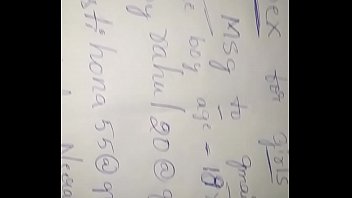 ex for girls
Msg to gmai
boy age = 18
rahul20@g
hona55@g